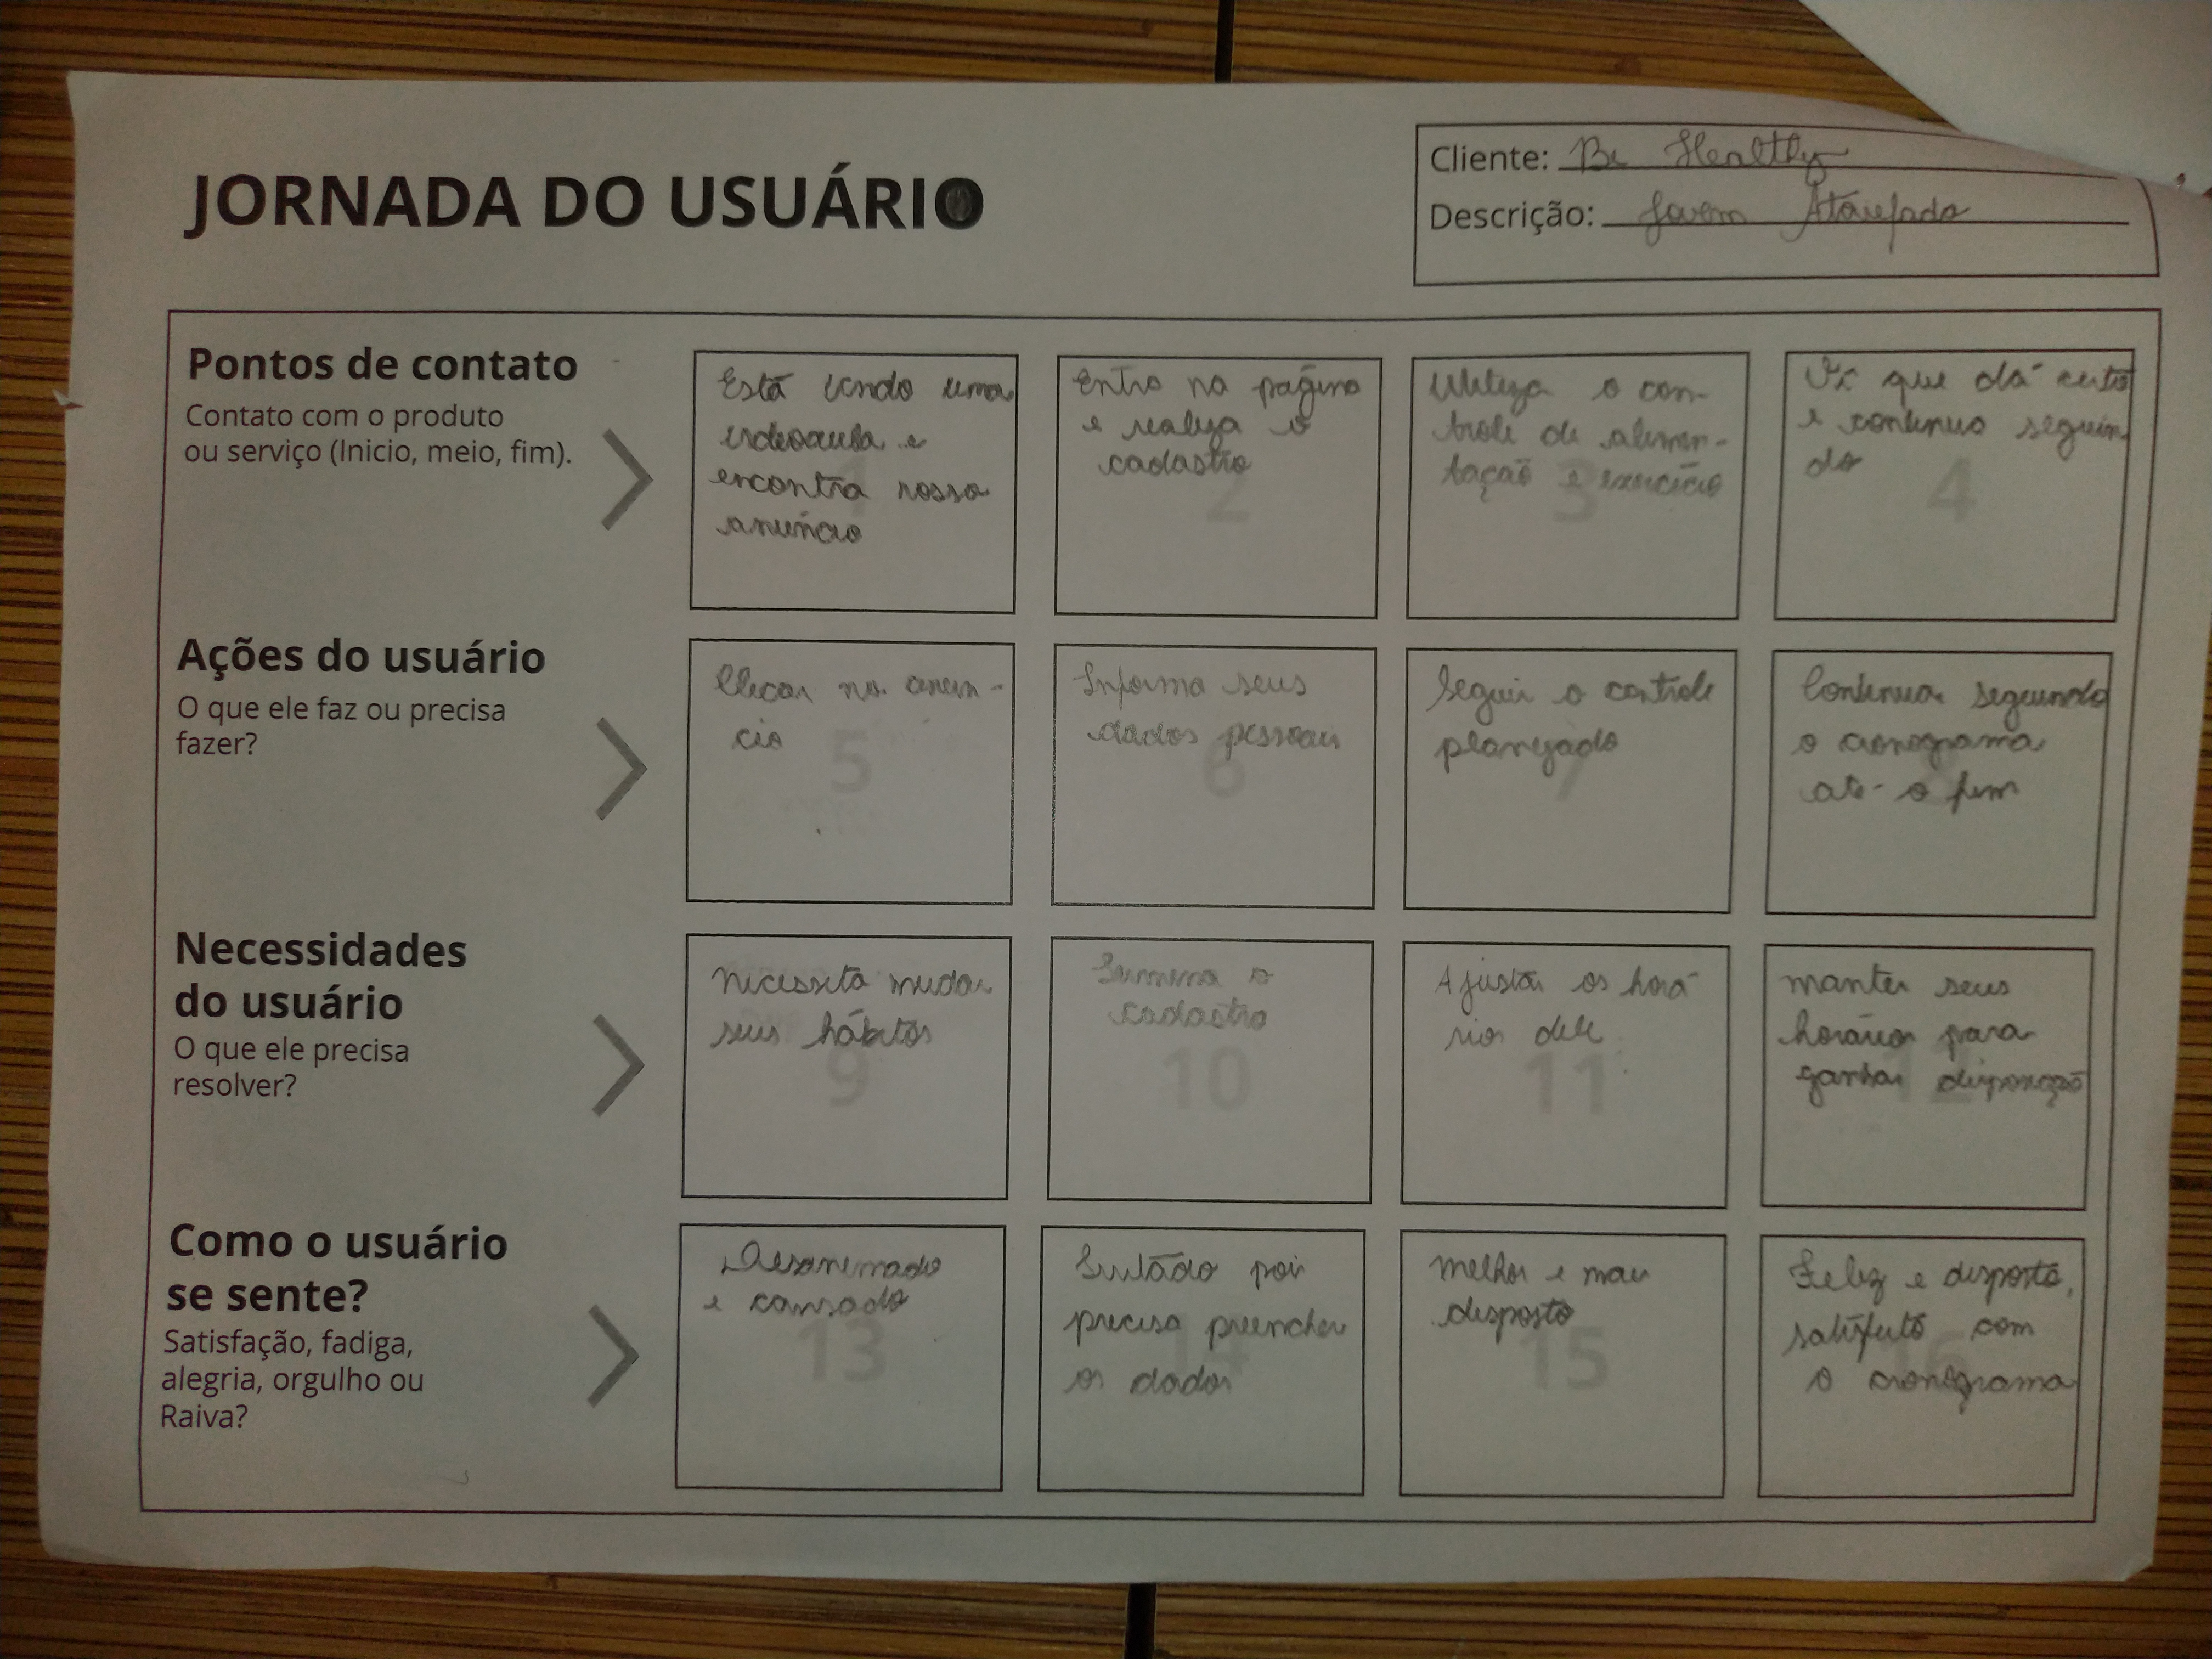 JORNADA DO USUÁRIO
Cliente: Be Healthy
Descrição: Jovem Atarefado
Pontos de contato
Contato com o produto
ou serviço (Inicio, meio, fim).
Está vendo uma
videoaula e
encontra nosso
anúncio
1
Entra na página
e realiza o
cadastro
2
Utiliza o con-
trole de alimen-
tação e exercício
3
Vê que dá certo
e continua seguin
do
4
Ações do usuário
O que ele faz ou precisa
fazer?
Clicar no anún-
cio
5
Informa seus
dados pessoais
6
Seguir o controle
planejado
7
Continuar seguindo
o cronograma
até o fim
8
Necessidades
do usuário
O que ele precisa
resolver?
Necessita mudar
seus hábitos
9
o
cadastro
10
Ajustar os horá
rios dele
11
manter seus
horários para
ganhar disposição
12
Como o usuário
se sente?
Satisfação, fadiga,
alegria, orgulho ou
Raiva?
Desanimado
e cansado
13
pois
precisa preencher
os dados
14
Melhor e mais
disposto
15
Feliz e disposto,
satisfeito com
o cronograma
16